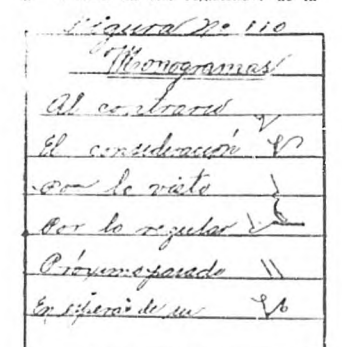 Figura Nº 110
Monogramas
Al contrario
El consideración
por lo visto
Por lo regular
Próximo pasado
En espera de su